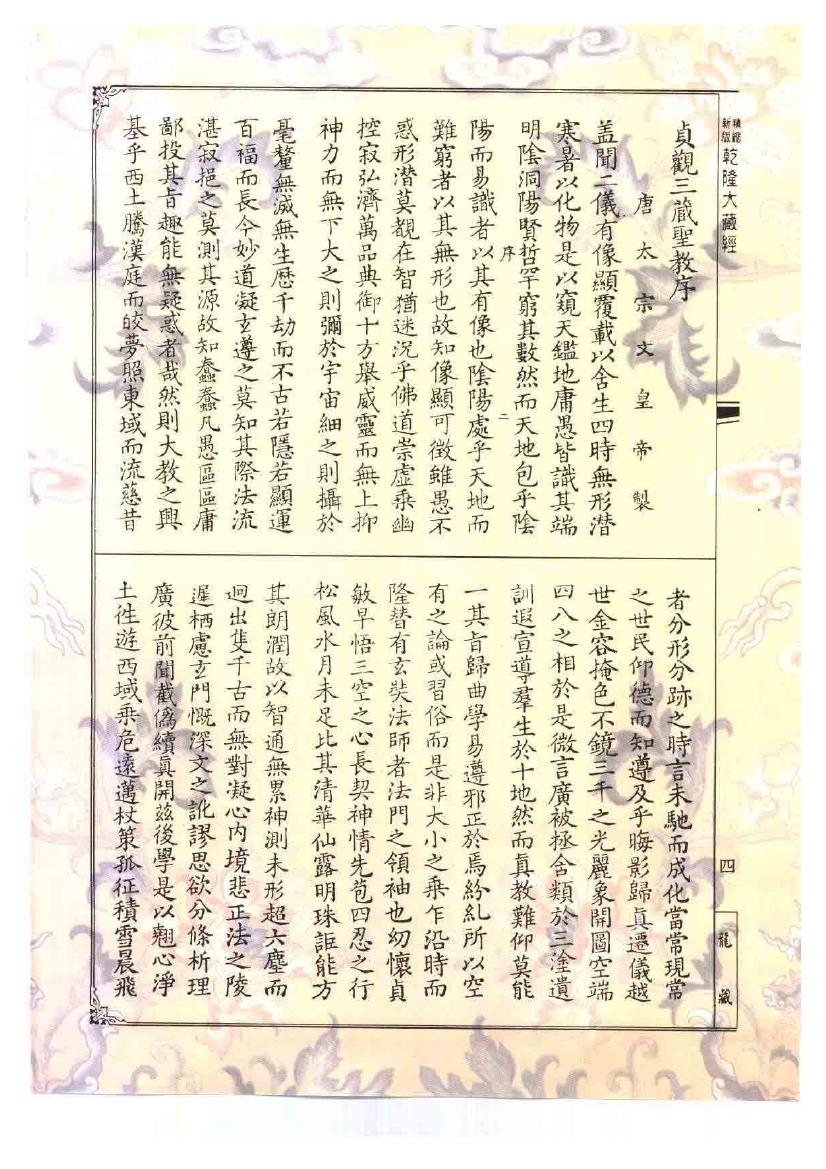 新版
精縮
乾隆大藏經
貞觀三藏聖教序
唐太宗文皇帝製
蓋聞二儀有像顯覆載以含生四時無形潛
寒暑以化物是以窺天鑑地庸愚皆識其端
明陰洞陽賢哲罕窮其數然而天地包乎陰
序
二
陽而易識者以其有像也陰陽處乎天地而
難窮者以其無形也故知像顯可徵雖愚不
惑形潛莫覩在智猶迷況乎佛道崇虛乘幽
控寂弘濟萬品典御十方舉威靈而無上抑
神力而無下大之則彌於宇宙細之則攝於
毫釐無滅無生歷千劫而不古若隱若顯運
百福而長今妙道凝玄遵之莫知其際法流
湛寂挹之莫測其源故知蠢蠢凡愚區區庸
鄙投其旨趣能無疑惑者哉然則大教之興
基乎西土騰漢庭而皎夢照東域而流慈昔
者分形分跡之時言未馳而成化當常現常
之世民仰德而知遵及乎晦影歸真遷儀越
世金容掩色不鏡三千之光麗象開圖空端
四八之相於是微言廣被拯含類於三塗遺
訓遐宣導羣生於十地然而真教難仰莫能
一其旨歸曲學易遵邪正於焉紛糺所以空
有之論或習俗而是非大小之乘乍沿時而
隆替有玄奘法師者法門之領袖也幼懷貞
敏早悟三空之心長契神情先苞四忍之行
松風水月未足比其清華仙露明珠詎能方
其朗潤故以智通無累神測未形超六塵而
迥出隻千古而無對凝心內境悲正法之陵
遲栖慮玄門慨深文之訛謬思欲分條析理
廣彼前聞截偽續真開茲後學是以翹心淨
土徃遊西域乘危遠邁杖策孤征積雪晨飛
四
龍藏